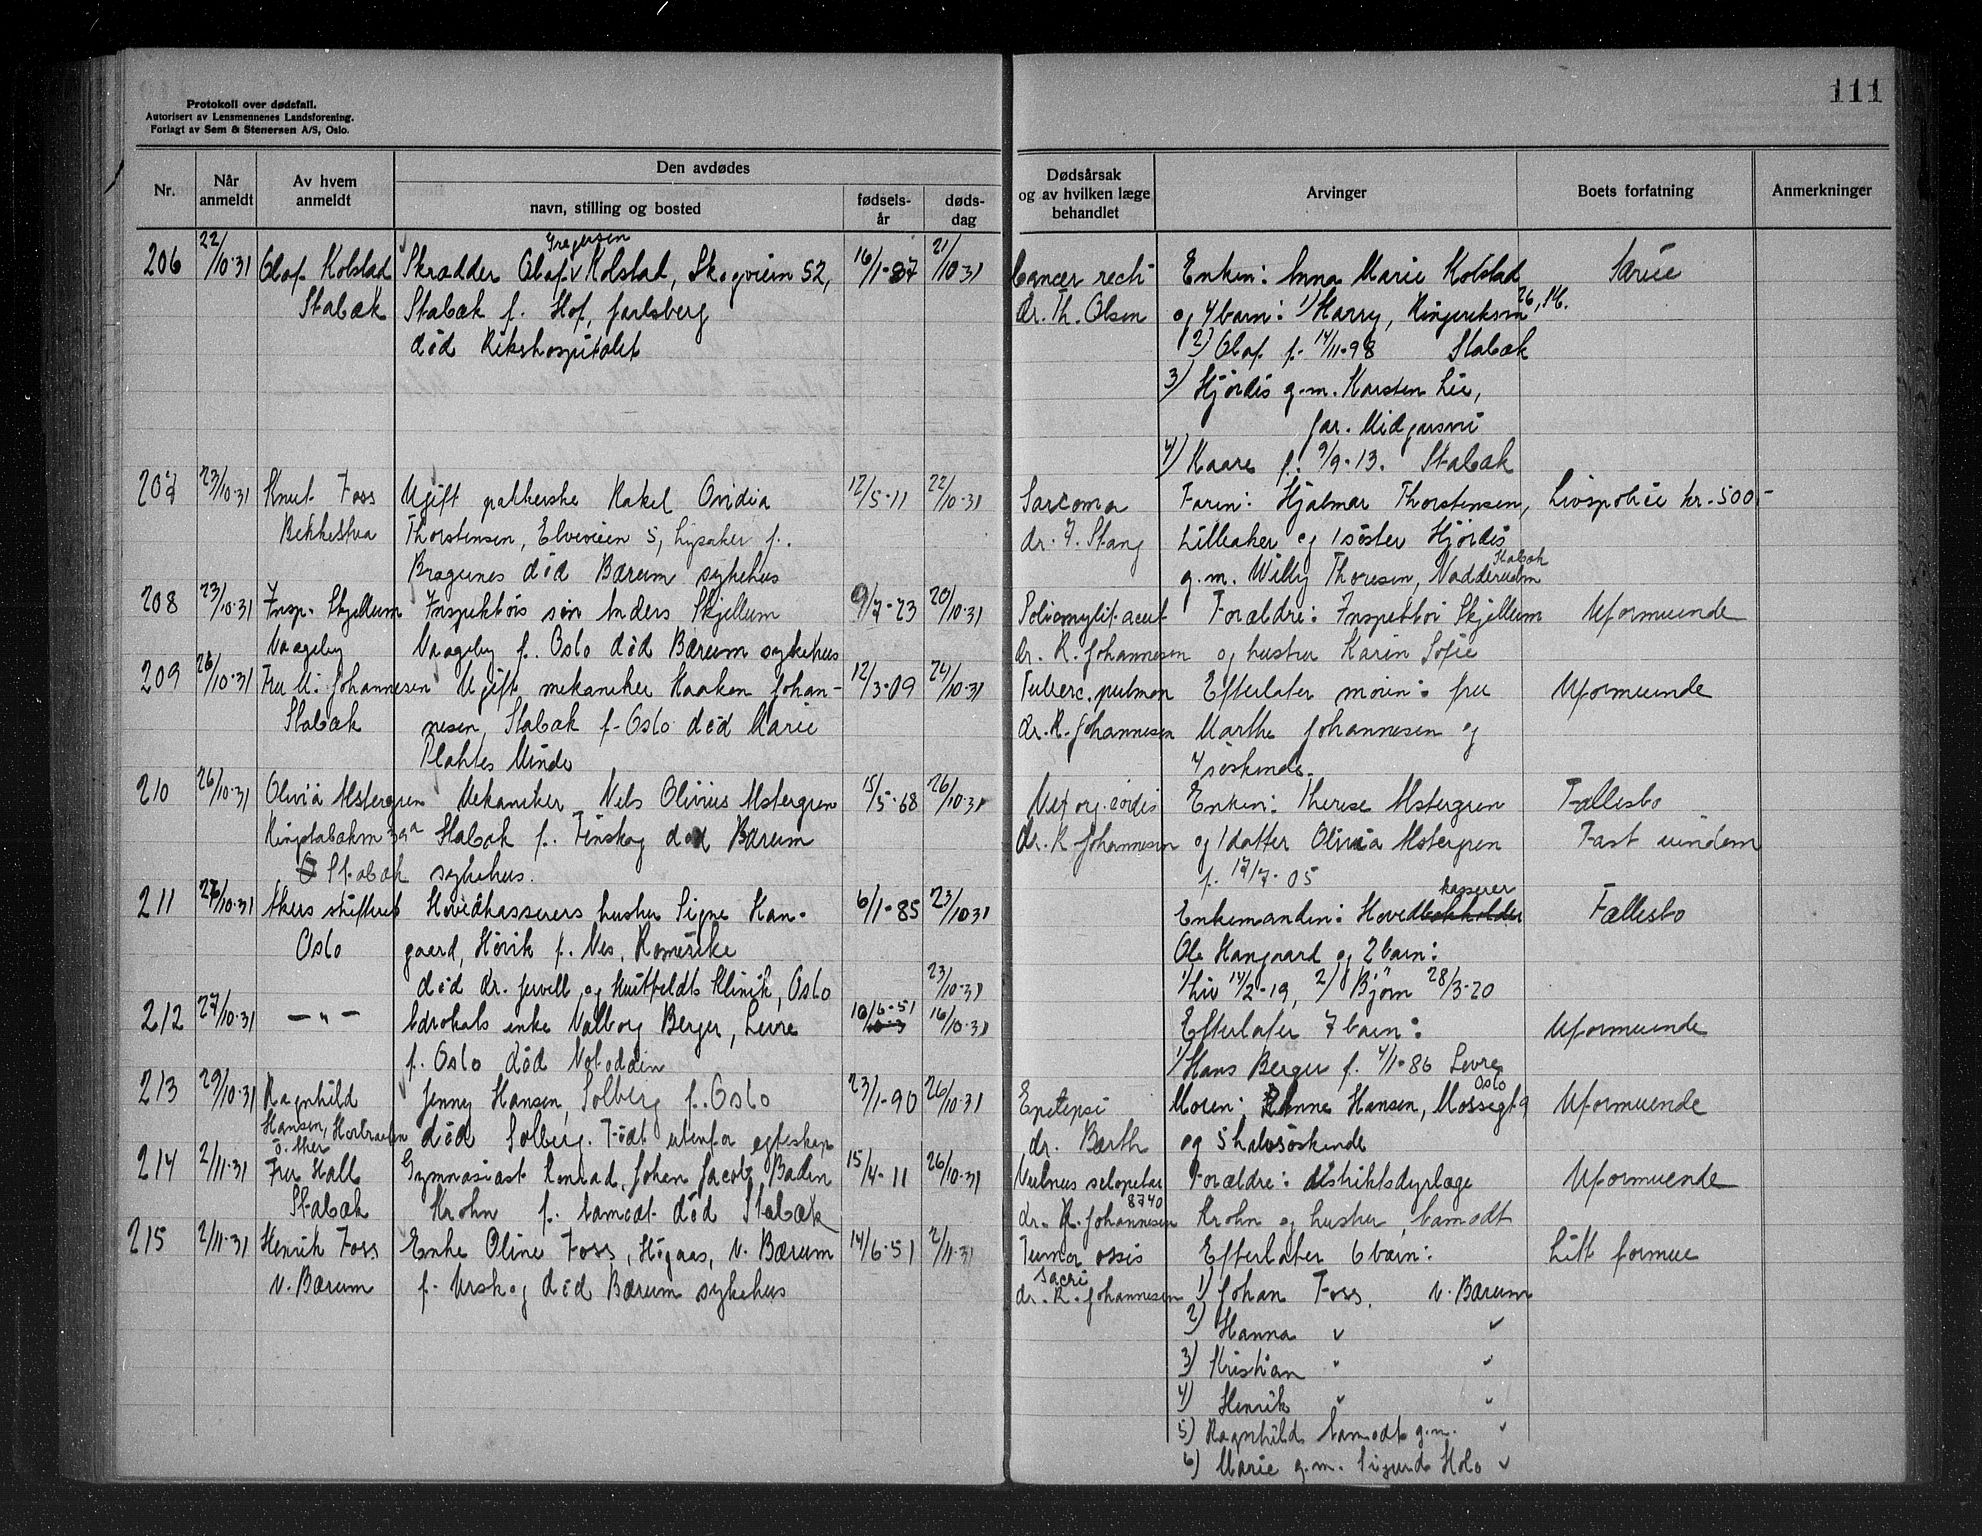 Protokoll over dødsfall.
Autorisert av Lensmennenes Landsforening.
Forlagt av Sem & Stenersen A/S, Oslo.
111
Nr.
Når anmeldt
Av hvem anmeldt
Den avdødes
navn, stilling og bosted
fødselsår
dødsdag
Dødsårsak og av hvilken læge behandlet
Arvinger
Boets forfatning
Anmerkninger
206 22/10-31 Olaf Kolstad Skrædder Olaf Gregersen Kolstad, Skogveien 52, 16/1-87 21/10 31 Cancer recti Enken: Anna Marie Kolstad Særeie
Stabæk Stabæk f. Hof, Jarlsberg dr. Th. Olsen og 4 barn: 1) Harry, Ringeriksvn 26, St.
død Rikshospitalet 2) Olaf f. 14/11-98 Stabæk
3) Hjørdis g.m. Karsten Lie,
Midgarsvei
4) Kaare f. 9/9-13. Stabæk
207 23/10-31 Knut Foss Ugift pakkerske Rakel Ovidia 12/5-11 22/10-31 Sarcoma Faren: Hjalmar Thorstensen, Livspolice kr. 500.-
Bekkestua Thorstensen, Elveveien 5, Lysaker f. dr. F. Stang Lilleaker og 1 søster Hjördis
Bragernes död Bærum sykehus g.m. Willy Thoresen, Nadderudvn Stabæk
208 23/10-31 Insp. Skjellum Inspektörs sön Anders Skjellum 9/7-23 20/10-31 Poliomylit. acut Forældre: Inspektör Skjellum Uformuende
Vaageby Vaageby f. Oslo död Bærum sykehus dr. R. Johannesen og hustru Karin Sofie
209 26/10-31 Fru M. Johannesen Ugift mekaniker Haakon Johan- 12/3-09 24/10-31 Tuberc. pulmon Efterlater moren: fru Uformuende
Stabæk nesen, Stabæk f. Oslo död Marie dr. R. Johannesen Marthe Johannesen og
Plahtes Minde 4 søskende.
210 26/10-31 Olivia Mstergren Mekaniker Nels Olivius Mstergren 15/5-68 26/10-31 Vit. org. cordis Enken: Therese Mstergren Fællesbo
Ringstabækvn 39a Stabæk f. Finskog død Bærum dr. R. Johannesen og 1 datter Olivia Mstergren Fast eiendom
St.abæk sykehus. f. 17/7-05
211 27/10-31 Akers skifterett Hovedkasserers hustru Signe Han- 6/1-85 23/10 31 Enkemanden: Hovedbokholder kasserer Fællesbo
Oslo gaard, Høvik f. Nes, Romerike Ole Hangaard og 2 barn:
död dr. Jervell og Huitfeldts Klinik, Oslo 23/10-31 1) Liv 14/2-19, 2) Bjørn 28/3-20
212 27/10-31 — " — Advokats enke Valborg Berger, Levre 10/6-51 16/10-31 Efterlater 7 barn: Uformuende
f. Oslo död Notodden 1) Hans Berger f. 4/1-86 Levre
213 29/10-31 Ragnhild Jenny Hansen, Solberg f. Oslo 23/1-90 26/10-31 Epilepsi Moren: Anne Hansen, Mossegt 9 Oslo Uformuende
Hansen, död Solberg. Födt utenfor egteskap dr. Barth og 5 halvsøskende
214 2/11-31 Fru Hall Gymnasiast Konrad Johan Jacob Baden 15/4-11 26/10-31 Vulnus sclopetar Forældre: distriktsdyrlæge Uformuende
Stabæk Krohn f. Tamodt död Stabæk dr. R. Johannesen 8740 Krohn og hustru Tamodt
215 2/11-31 Henrik Foss Enke Oline Foss, Högaas, V. Bærum 14/6-51 2/11-31 Tumor ossis sacri Efterlater 6 barn: Litt formue
V. Bærum f. Urskog död Bærum sykehus dr. R. Johannesen 1) Johan Foss. V. Bærum
2) Hanna " "
3) Kristian " "
4) Henrik " "
5) Ragnhild Tamodt g.m. "
6) Marie g.m. Sigurd Holo "